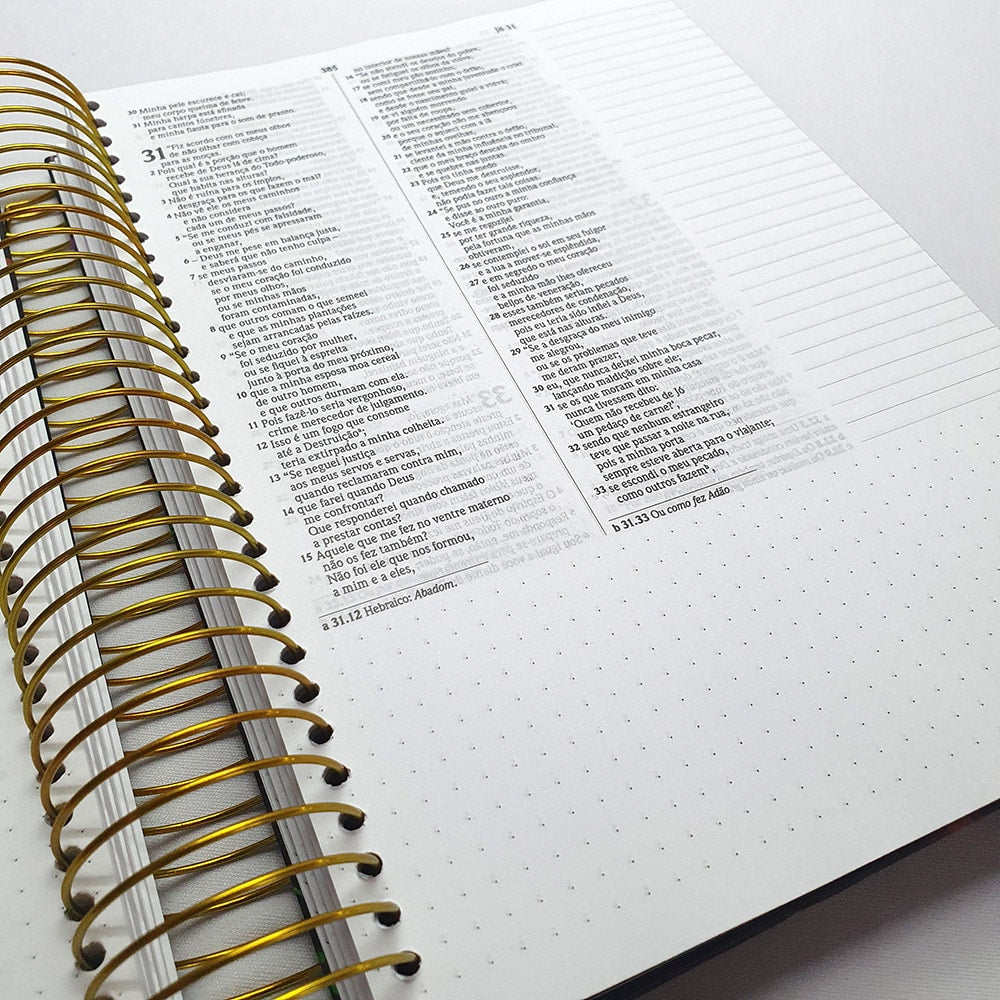 385
Jó 31
30 Minha pele escurece e cai;
meu corpo queima de febre.
31 Minha harpa está afinada
para cantos fúnebres,
e minha flauta para o som de pranto.
31 "Fiz acordo com os meus olhos
de não olhar com cobiça
para as moças.
2 Pois qual é a porção que o homem
recebe de Deus lá de cima?
Qual a sua herança do Todo-poderoso,
que habita nas alturas?
3 Não é ruína para os ímpios,
desgraça para os que fazem o mal?
4 Não vê ele os meus caminhos
e não considera
cada um de meus passos?
5 "Se me conduzi com falsidade,
ou se meus pés se apressaram
a enganar,
6 – Deus me pese em balança justa,
e saberá que não tenho culpa –
7 se meus passos
desviaram-se do caminho,
se o meu coração foi conduzido
por meus olhos,
ou se minhas mãos
foram contaminadas,
8 que outros comam o que semeei
e que as minhas plantações
sejam arrancadas pelas raízes.
9 "Se o meu coração
foi seduzido por mulher,
ou se fiquei à espreita
junto à porta do meu próximo,
10 que a minha esposa moa cereal
de outro homem,
e que outros durmam com ela.
11 Pois fazê-lo seria vergonhoso,
crime merecedor de julgamento.
12 Isso é um fogo que consome
até a Destruiçãoª;
teria extirpado a minha colheita.
13 "Se neguei justiça
aos meus servos e servas,
quando reclamaram contra mim,
14 que farei quando Deus
me confrontar?
Que responderei quando chamado
a prestar contas?
15 Aquele que me fez no ventre materno
não os fez também?
Não foi ele que nos formou,
a mim e a eles,
a 31.12 Hebraico: Abadom.
no interior de nossas mães?
16 "Se não atendi os desejos do pobre,
ou se fatiguei os olhos da viúva,
17 se comi meu pão sozinho,
sem compartilhá-lo com o órfão,
18 sendo que desde a minha juventude o criei
como se fosse seu pai,
e desde o nascimento guiei a viúva;
19 se vi alguém morrendo
por falta de roupa,
ou um necessitado sem cobertor,
20 e o seu coração não me abençoou
porque o aqueci com a lã
21 se levantei a mão contra o órfão,
ciente da minha influência no tribunal,
22 que o meu braço descaia do ombro
e se quebre nas juntas.
23 Pois eu tinha medo
que Deus me destruísse,
e, temendo o seu esplendor,
não podia fazer tais coisas.
24 "Se pus no ouro a minha confiança
e disse ao ouro puro:
Você é a minha garantia,
25 se me regozijei
por ter grande riqueza,
pela fortuna que as minhas mãos
obtiveram,
26 se contemplei o sol em seu fulgor
e a lua a mover-se esplêndida,
27 e em segredo o meu coração
foi seduzido
e a minha mão lhes ofereceu
beijos de veneração,
28 esses também seriam pecados
merecedores de condenação,
pois eu teria sido infiel a Deus,
que está nas alturas.
29 "Se a desgraça do meu inimigo
me alegrou,
ou se os problemas que teve
me deram prazer;
30 eu, que nunca deixei minha boca pecar,
lançando maldição sobre ele;
31 se os que moram em minha casa
nunca tivessem dito:
'Quem não recebeu de Jó
um pedaço de carne?',
32 sendo que nenhum estrangeiro
teve que passar a noite na rua,
pois a minha porta
sempre esteve aberta para o viajante;
33 se escondi o meu pecado,
como outros fazemᵇ,
b 31.33 Ou como fez Adão